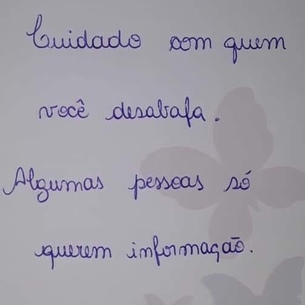 Cuidado com quem
você desabafa.
Algumas pessoas só
querem informação.